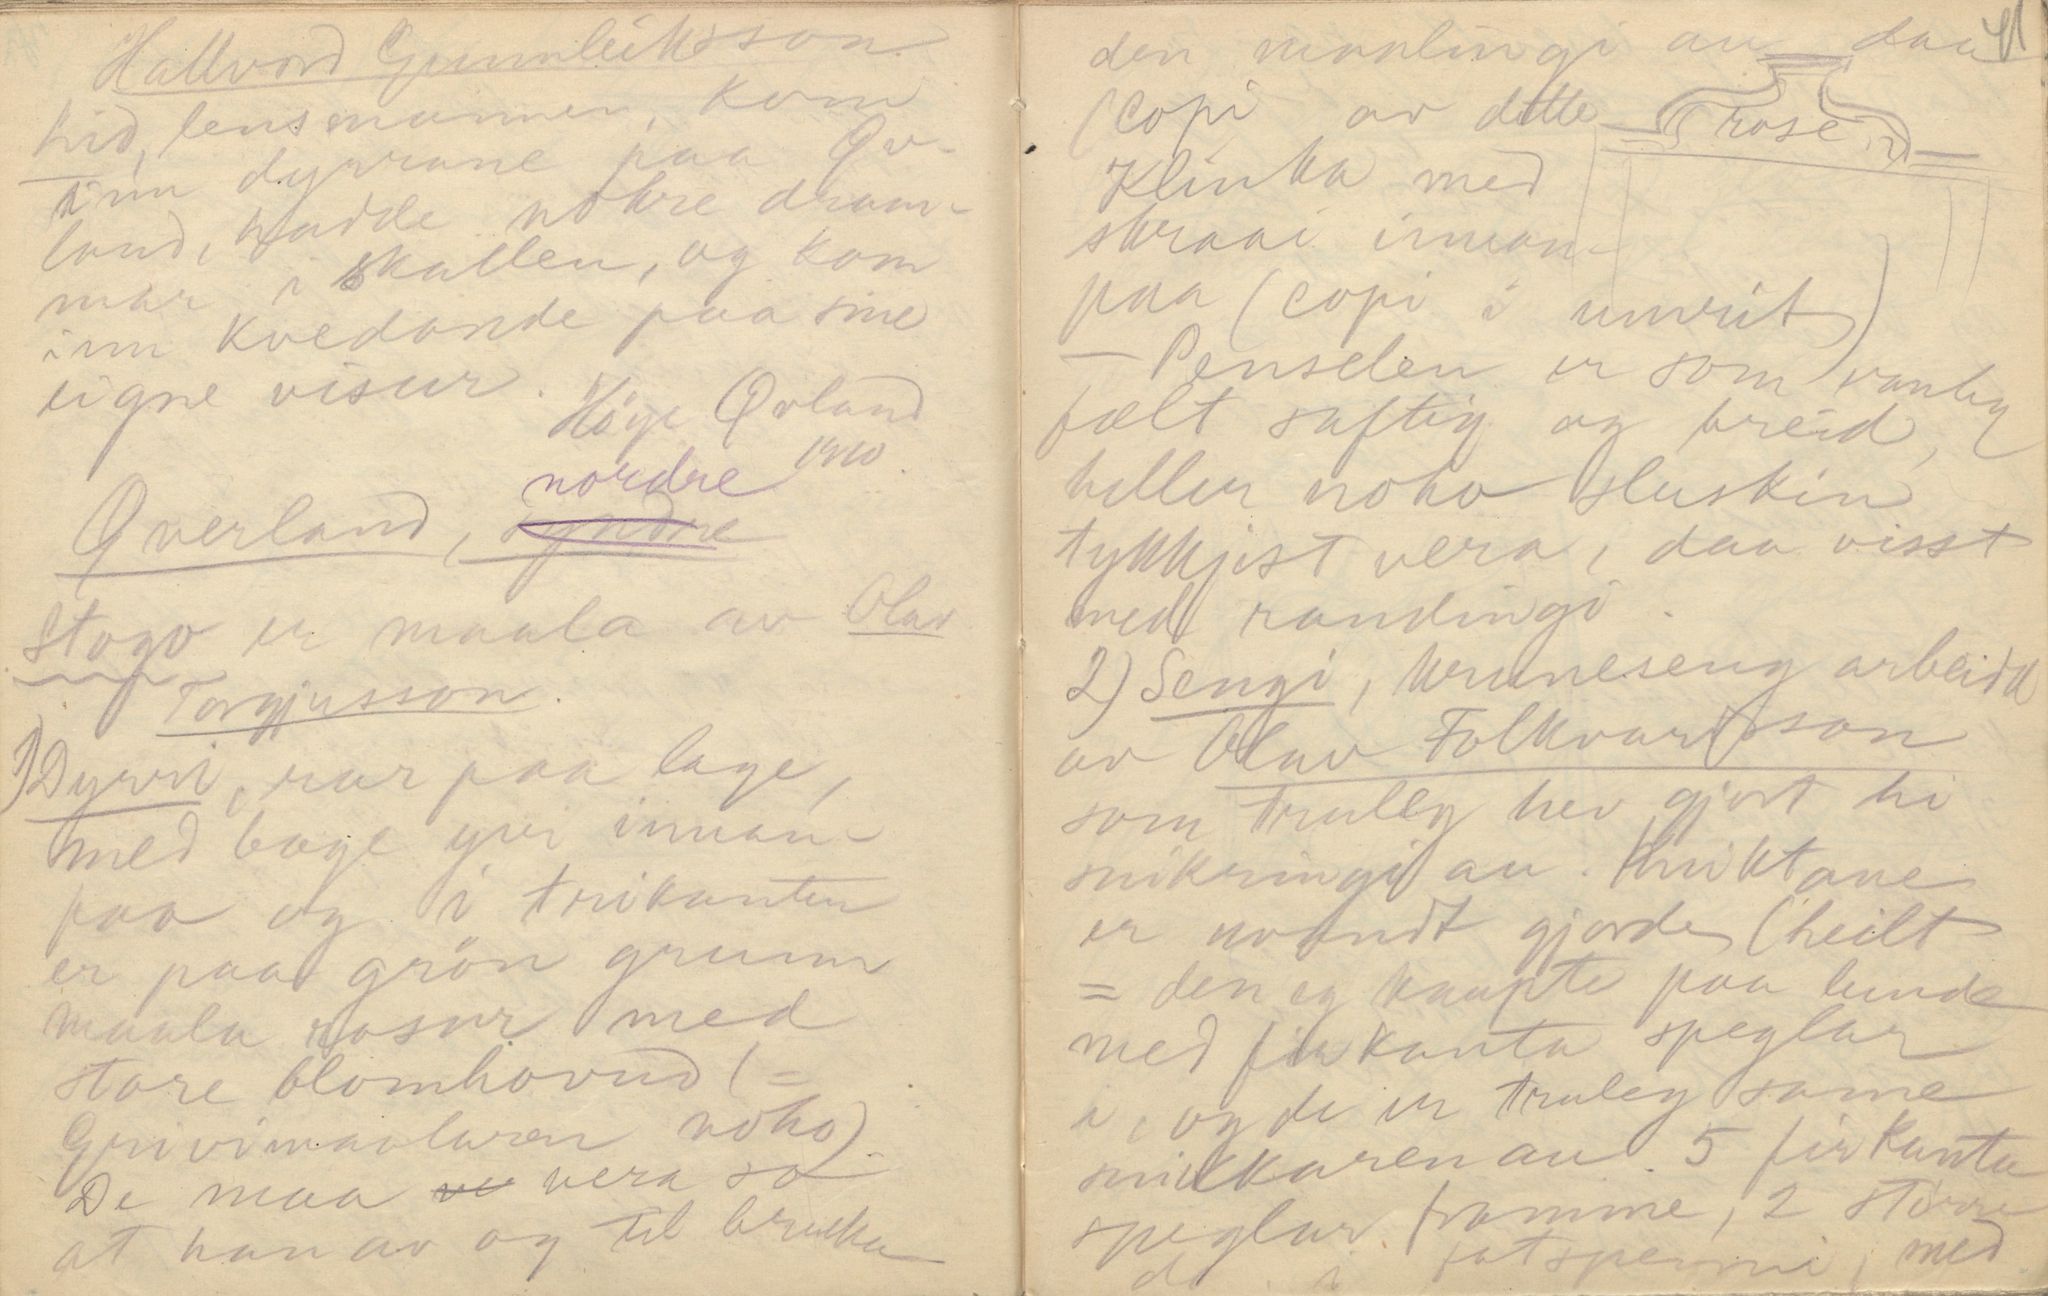 Hallvord Gunnleiksson
Lid, lensmannen, kom
inn dyrrane paa Øv-
land, hadde nokre dram-
mar i skallen, og kom
inn kvedande paa sine
eigne visur.
Høye Øvland
1910.
nordre
Øverland, syndre
Stogo er maala av Olav
Torgjusson.
1) Dyrri, rar paa lage,
med boge yver innan-
paa og i trikanten
er paa grön grunn
maala rosur med
store blomhovud (=
Grivimaalaren noko).
De maa ve vera so
at han av og til bruka
41
den maalingi au daa
(copi av dette
rose
Klinka med
skraai innan-
paa (copi i umrit)
- Penselen er som vanleg
fælt saftig og breid,
heller noko sluskin
tykkjist vera, daa visst
med randingi.
2) Sengi, kruneseng arbeidd
av Olav Folkvardsson
som truleg hev gjort hi
snikringi au. Knktane
er uvandt gjorde (heilt
= den eg kaupte paa Lunde
med firkanta speglar
i, og de er truleg same
snikkaren au. 5 firkanta
speglar framme, 2 större
do. i fotspenni, med